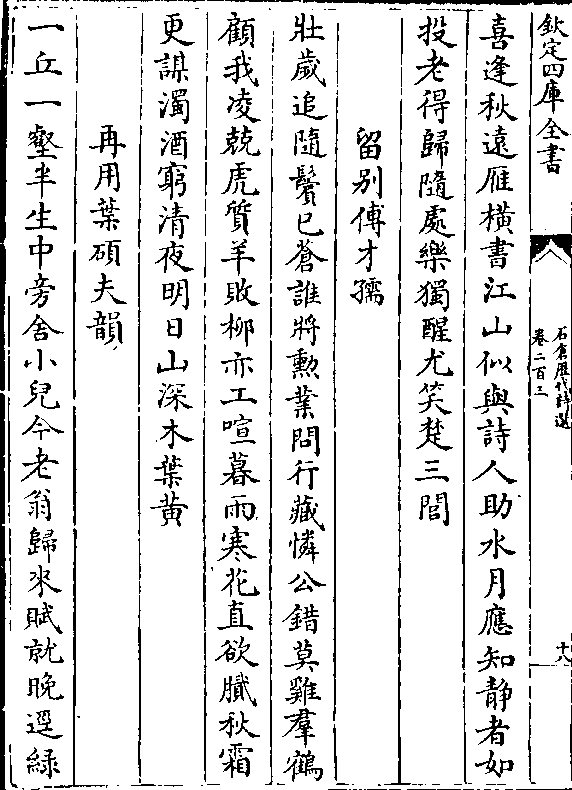 欽定四庫全書
石倉歷代詩選
卷二百三
十八
喜逢秋遠雁橫書江山似與詩人助水月應知静者如
投老得歸隨處樂獨醒尤笑楚三閭
留别傅才孺
壯歲追隨鬢已蒼誰將勲業問行藏憐公錯莫雞羣鶴
顧我凌兢虎質羊敗柳亦工喧暮雨寒花直欲膩秋霜
更謀濁酒窮清夜明日山深木葉黄
再用葉碩夫韻
一丘一壑半生中旁舍小兒今老翁歸來賦就晚逕緑